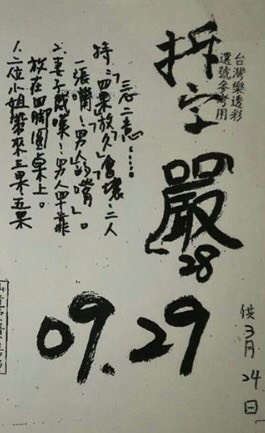 台灣樂透彩
選號參考用
拆字
嚴
28
09.29
供3月24日
1.一位小姐帶來三果五果
放在四腳圓桌上。
2.妻子感嘆:男人
一張嘴」「男人的嘴」。
四果放久會壞